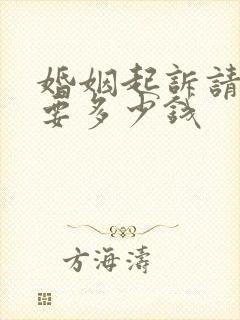 婚姻起訴請
要多少錢
方海濤